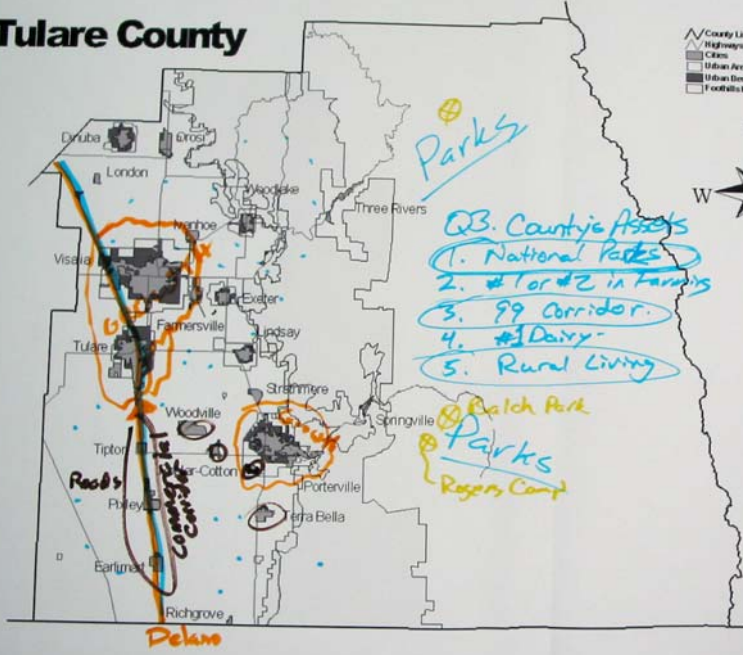 Tulare County
County Li
Highways
Cities
Urban Are
Urban De
Foothills
Dinuba
Orosi
London
Woodlake
Three Rivers
Ivanhoe
Visalia
Exeter
Farmersville
Tulare
Lindsay
Strathmore
Woodville
Springville
Tipton
ar-Cotton
Porterville
Pixley
Terra Bella
Earlimart
Richgrove
W
Parks
Q3. County's Assets
1. National Parks
2. #1 or #2 in Farming
3. 99 Corridor.
4. #1 Dairy-
5. Rural Living
Balch Park
Parks
Rogers Camp
Growth
Roads
Commercial
Corridor
Delano